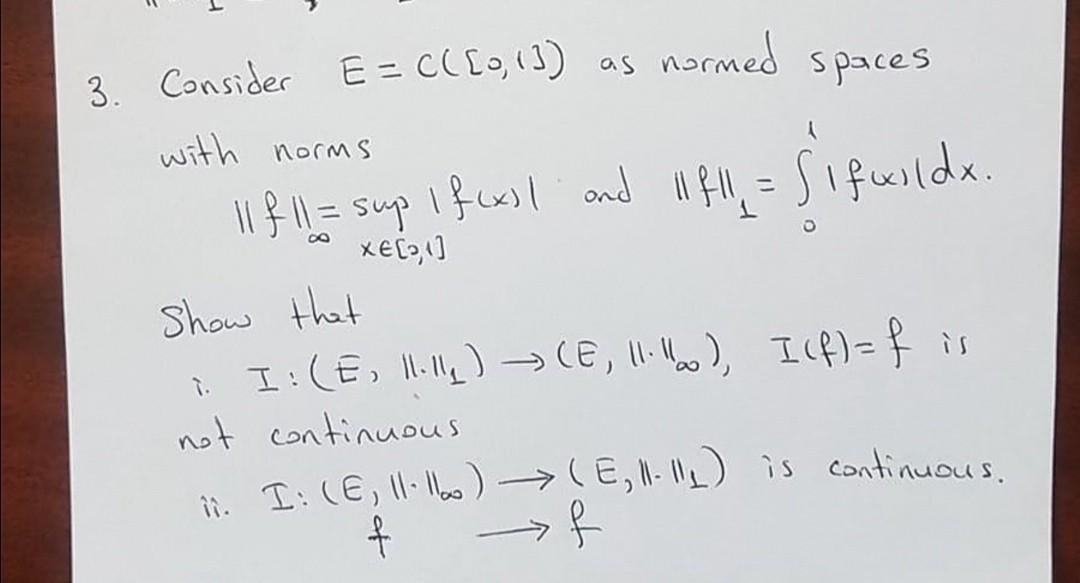 3. Consider E = C([0,1]) as normed spaces
with norms
||f||_∞ = sup_{x∈[0,1]} |f(x)| and ||f||_1 = ∫_0^1 |f(x)|dx.
Show that
i. I:(E, ||.||_1) → (E, ||.||_∞), I(f)=f is
not continuous
ii. I:(E, ||.||_∞) → (E, ||.||_1) is continuous.
f → f